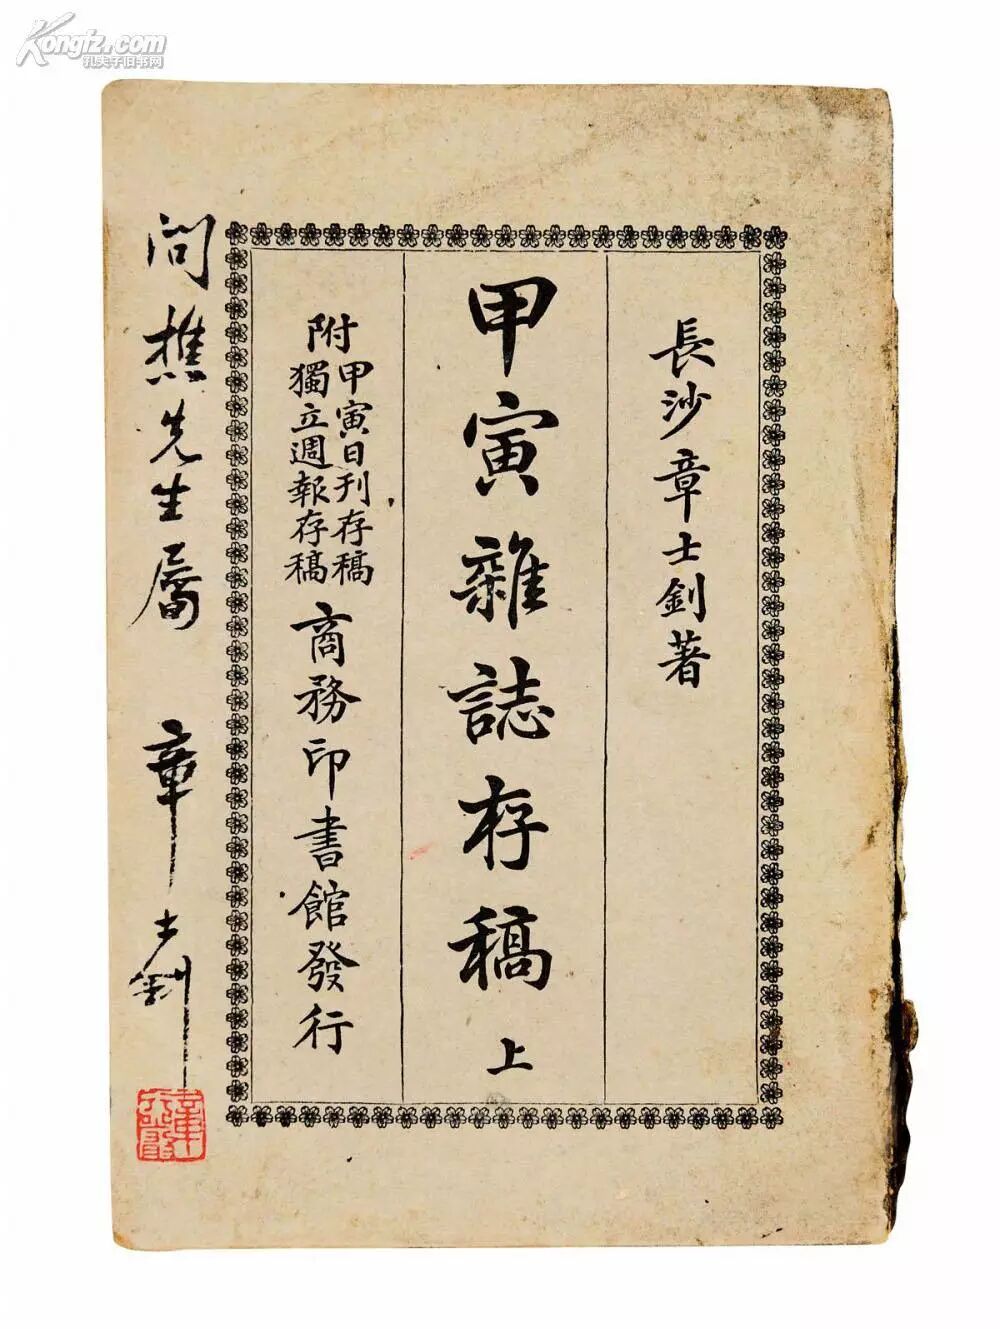 Kongfz.com
孔夫子旧书网
長沙章士釗著
甲寅雜誌存稿 上
附
甲寅日刊存稿
獨立週報存稿
商務印書館發行
問樵先生屬
章士釗